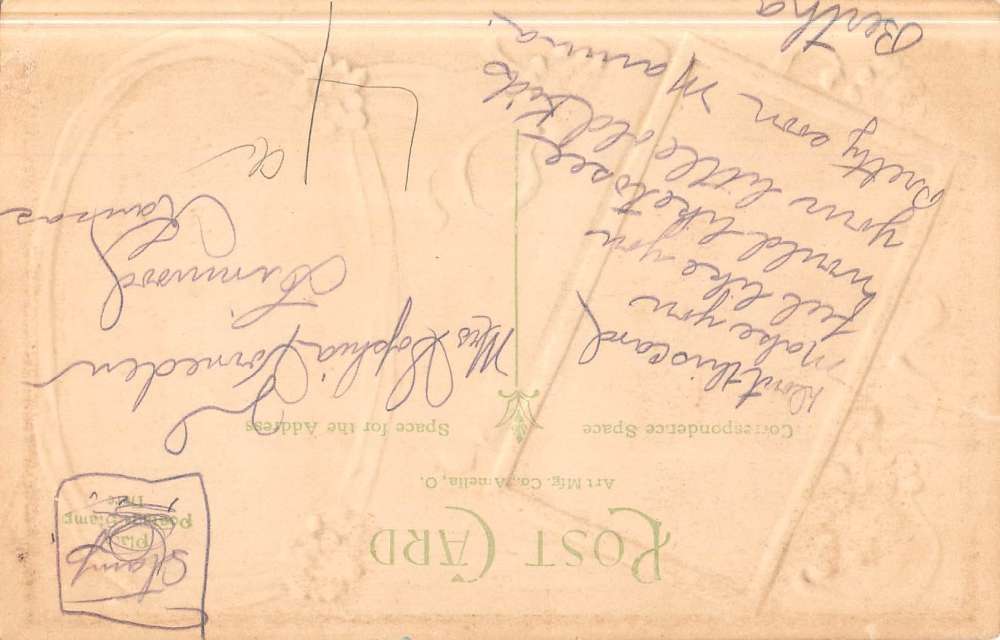 POST CARD
Art Mfg. Co., Amelia, O.
Correspondence Space
Space for the Address
Place
Postage Stamp
Here
Stamp
Dont this card
make you
feel like you
would like to see
your little old kids
Pretty soon Mamma.
Bertha
Mrs Sophia Torneden
Linwood
Kansas